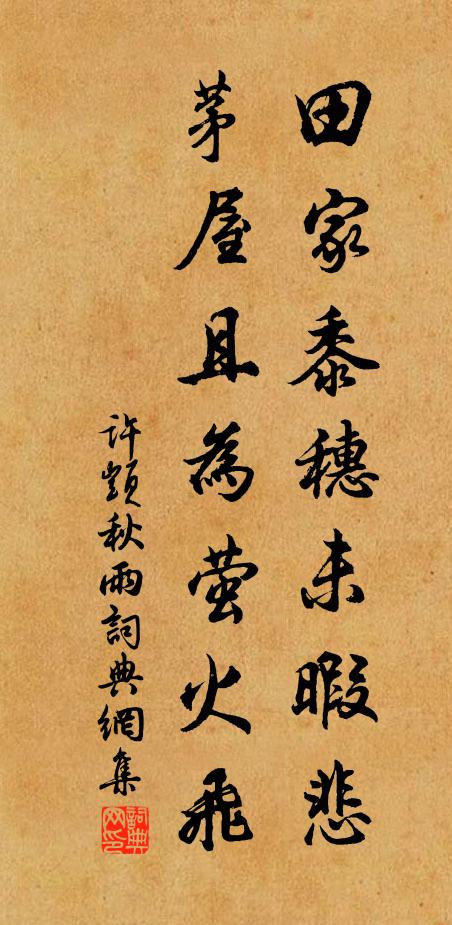 田家黍穗未暇悲
茅屋且為萤火飛
許顗秋雨詞典網集
詞典网印